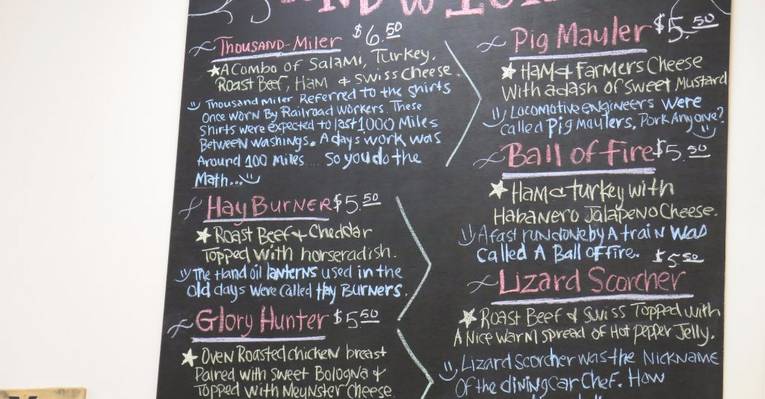 Thousand-Miler $6.50
A Combo of Salami, Turkey,
Roast Beef, Ham & Swiss Cheese.
Thousand Miler Referred to the Shirts
Once Worn By Railroad Workers. These
Shirts were expected to last 1000 Miles
Between Washings. A days work was
Around 100 Miles.... So you do the
Math...
Hay Burner $5.50
Roast Beef & Cheddar
Topped with horseradish.
The Hand oil lanterns used in the
old days were called Hay Burners.
Glory Hunter $5.50
Oven Roasted chicken breast
Paired with Sweet Bologna &
Topped with Meunster Cheese
Pig Mauler $5.50
Ham & Farmers Cheese
With a dash of Sweet Mustard
Locomotive engineers were
called Pig Maulers, Pork Anyone?
Ball of Fire $5.50
Ham & turkey with
Habanero Jalapeno Cheese.
A fast run done by A train was
called A Ball of Fire.
$5.50
Lizard Scorcher
Roast Beef & Swiss Topped with
A Nice warm spread of Hot Pepper Jelly.
Lizard Scorcher was the Nickname
Of the dining car Chef. How